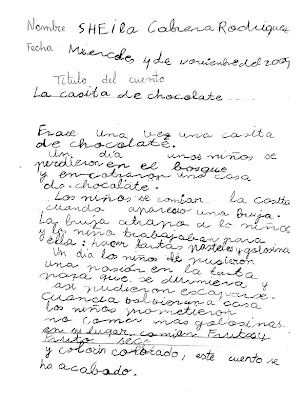 Nombre SHEILA Cabrera Rodríguez
Fecha Miercoles 4 de noviembre del 2009
Título del cuento
La casita de chocolate
Erase una vez una casita
de chocolate.
Un día unos niños se
perdieron en el bosque
y encontraron una casa
de chocolate.
Los niños se comian la casita
cuando aparecio una bruja.
La bruja atrapo a lo niños
y lo niño trabajaban para
ella: hacer tartas pasteles y golosina
Un dia los niños le pusieron
una posión en la tarta
para que se durmiera y
asi pudieron escaparse.
Cuando volvieron a casa
los niños prometieron
no comer mas golosinas.
en su lugar comian Frutas y
Fruto seco
y colorin colorado, este cuento se
ha acabado.